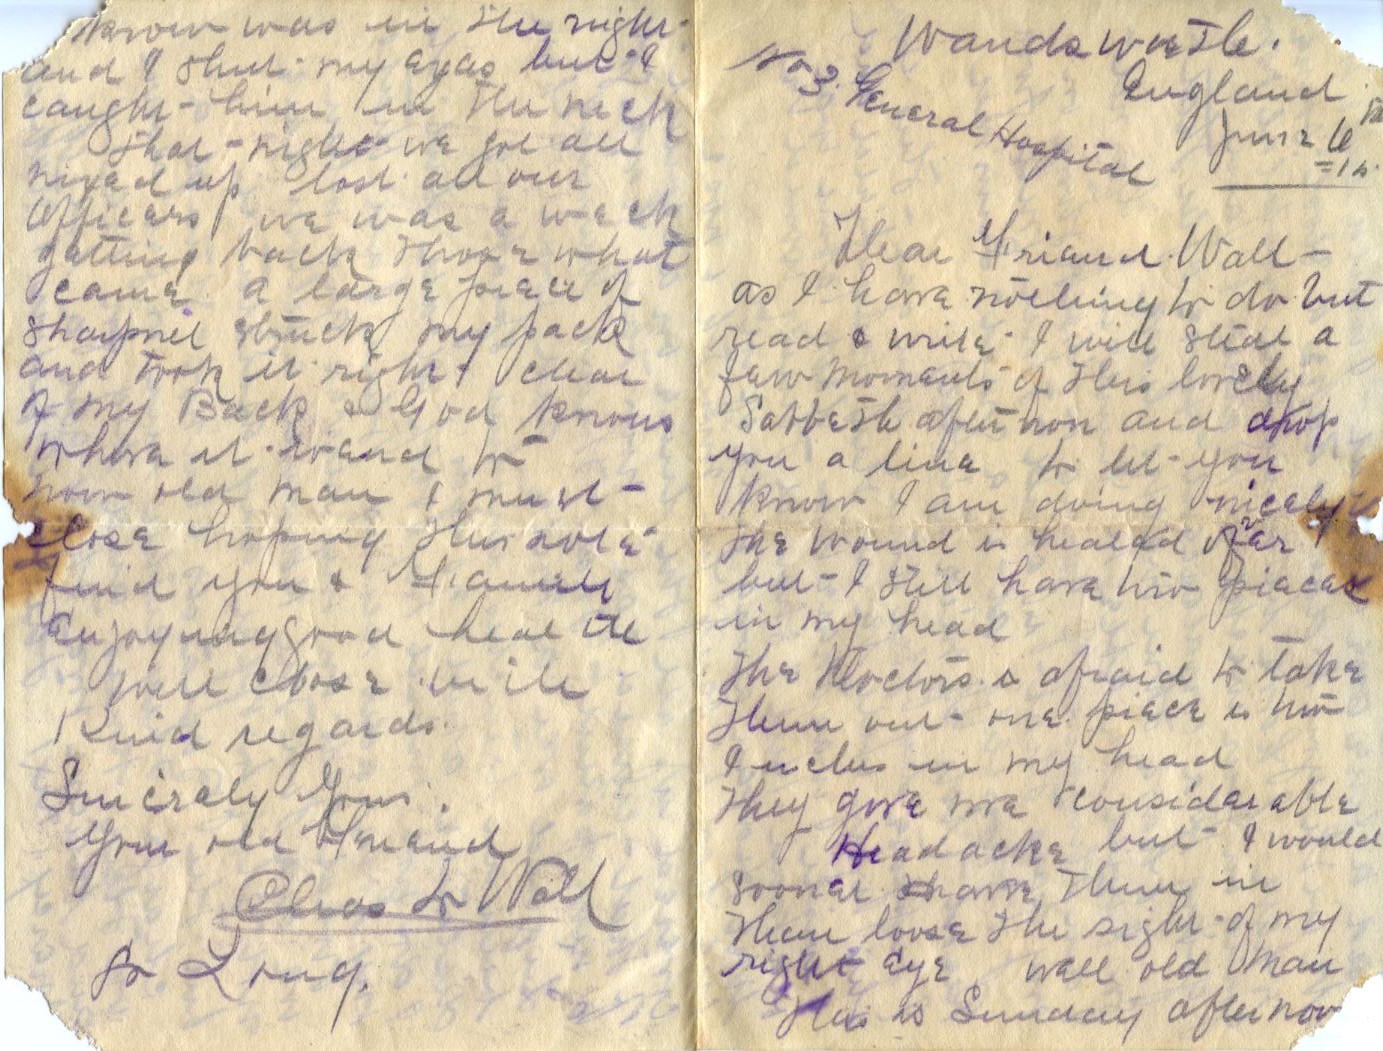 Wandsworth.
No 3. General Hospital
England
June 6
Dear Friend. Wall-
as I have nothing to do but
read & write I will steal a
few moments of this lovely
Sabbeth afternoon and drop
you a line to let you
know I am doing nicely
The wound is healed over
but I still have two pieces
in my head
The Doctors is afraid to take
them out - one piece is two
Inches in my head
They give me considerable
Headacke but I would
sooner have them in
than loose the sight of my
right Eye well old man
this is Sunday afternoon
know was in the night
and I shut my Eyes but I
caught him in the neck
That night we got all
mixed up lost all our
officers we was a week
getting back those what
came a large piece of
sharpnel struck my pack
and took it right clear
of my Back & God knows
where it went to
now old man I must
close hoping this note
find you & Family
Enjoying good health
will close with
Kind regards.
Sincerely Yours.
Your old Friend
Chas W Wall
So Long.